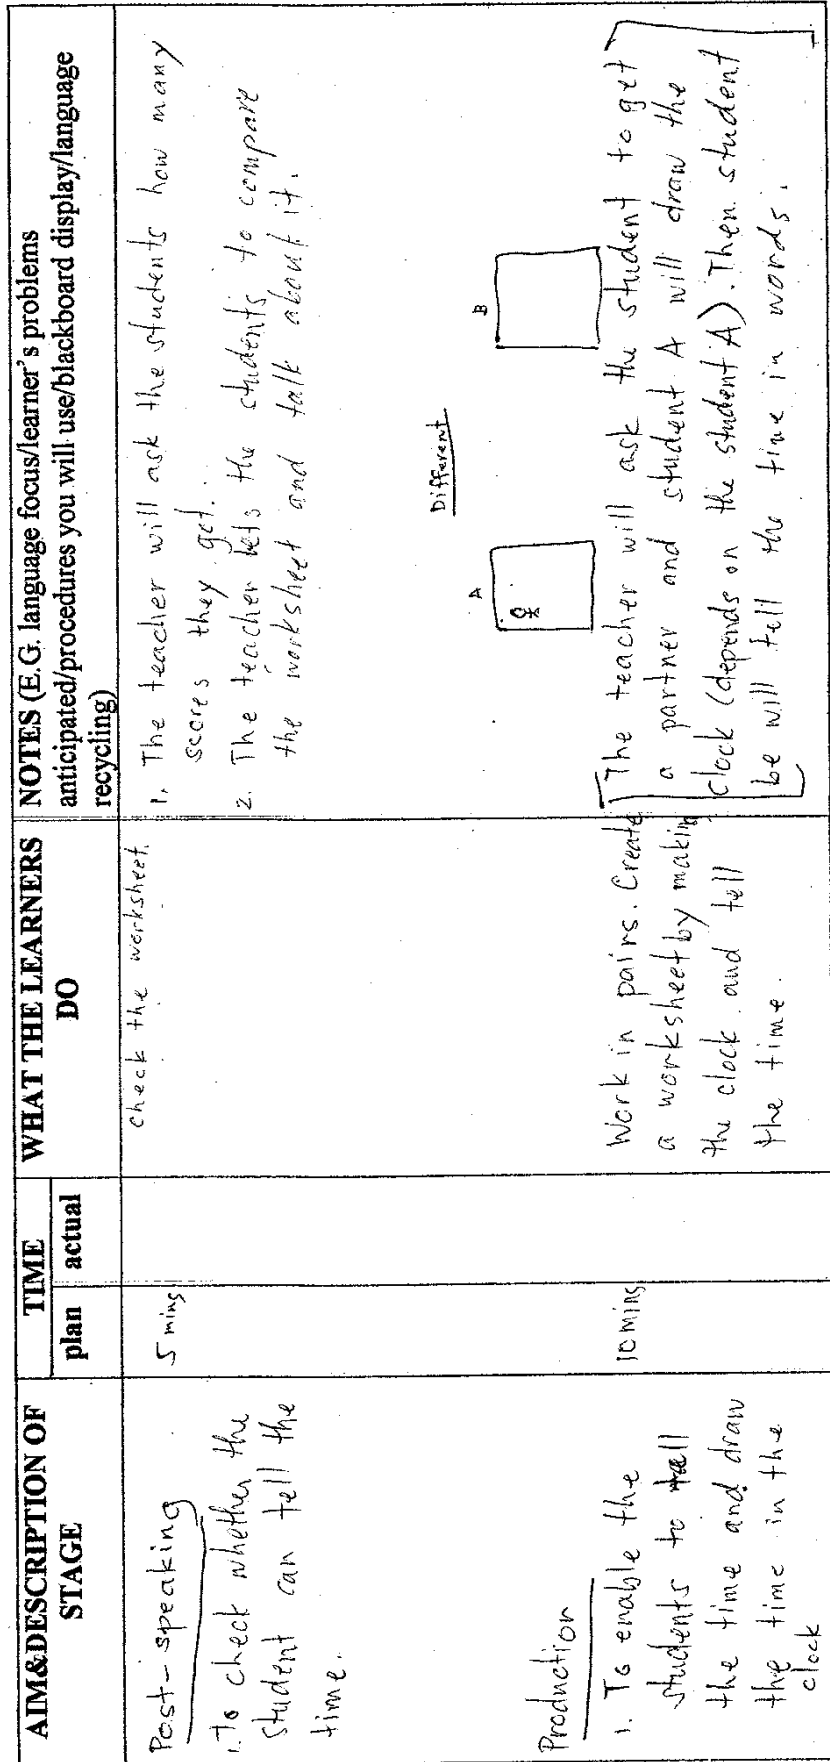 AIM&DESCRIPTION OF
STAGE
TIME
plan
actual
WHAT THE LEARNERS
DO
NOTES (E.G. language focus/learner's problems
anticipated/procedures you will use/blackboard display/language
recycling)
Post-speaking
1. To check whether the
student can tell the
time.
5 mins
check the worksheet.
1. The teacher will ask the students how many
scores they get.
2. The teacher lets the students to compare
the worksheet and talk about it.
Different
A
B
Production
1. To enable the
students to tell
the time and draw
the time in the
clock
10 mins
Work in pairs. Create
a worksheet by making
the clock and tell
the time.
The teacher will ask the student to get
a partner and student A will draw the
clock (depends on the student A). Then student
be will tell the time in words.